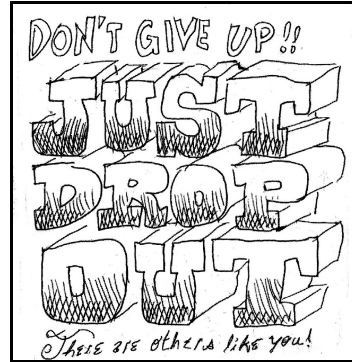 DON'T GIVE UP!!
JUST
DROP
OUT
There are others like you!